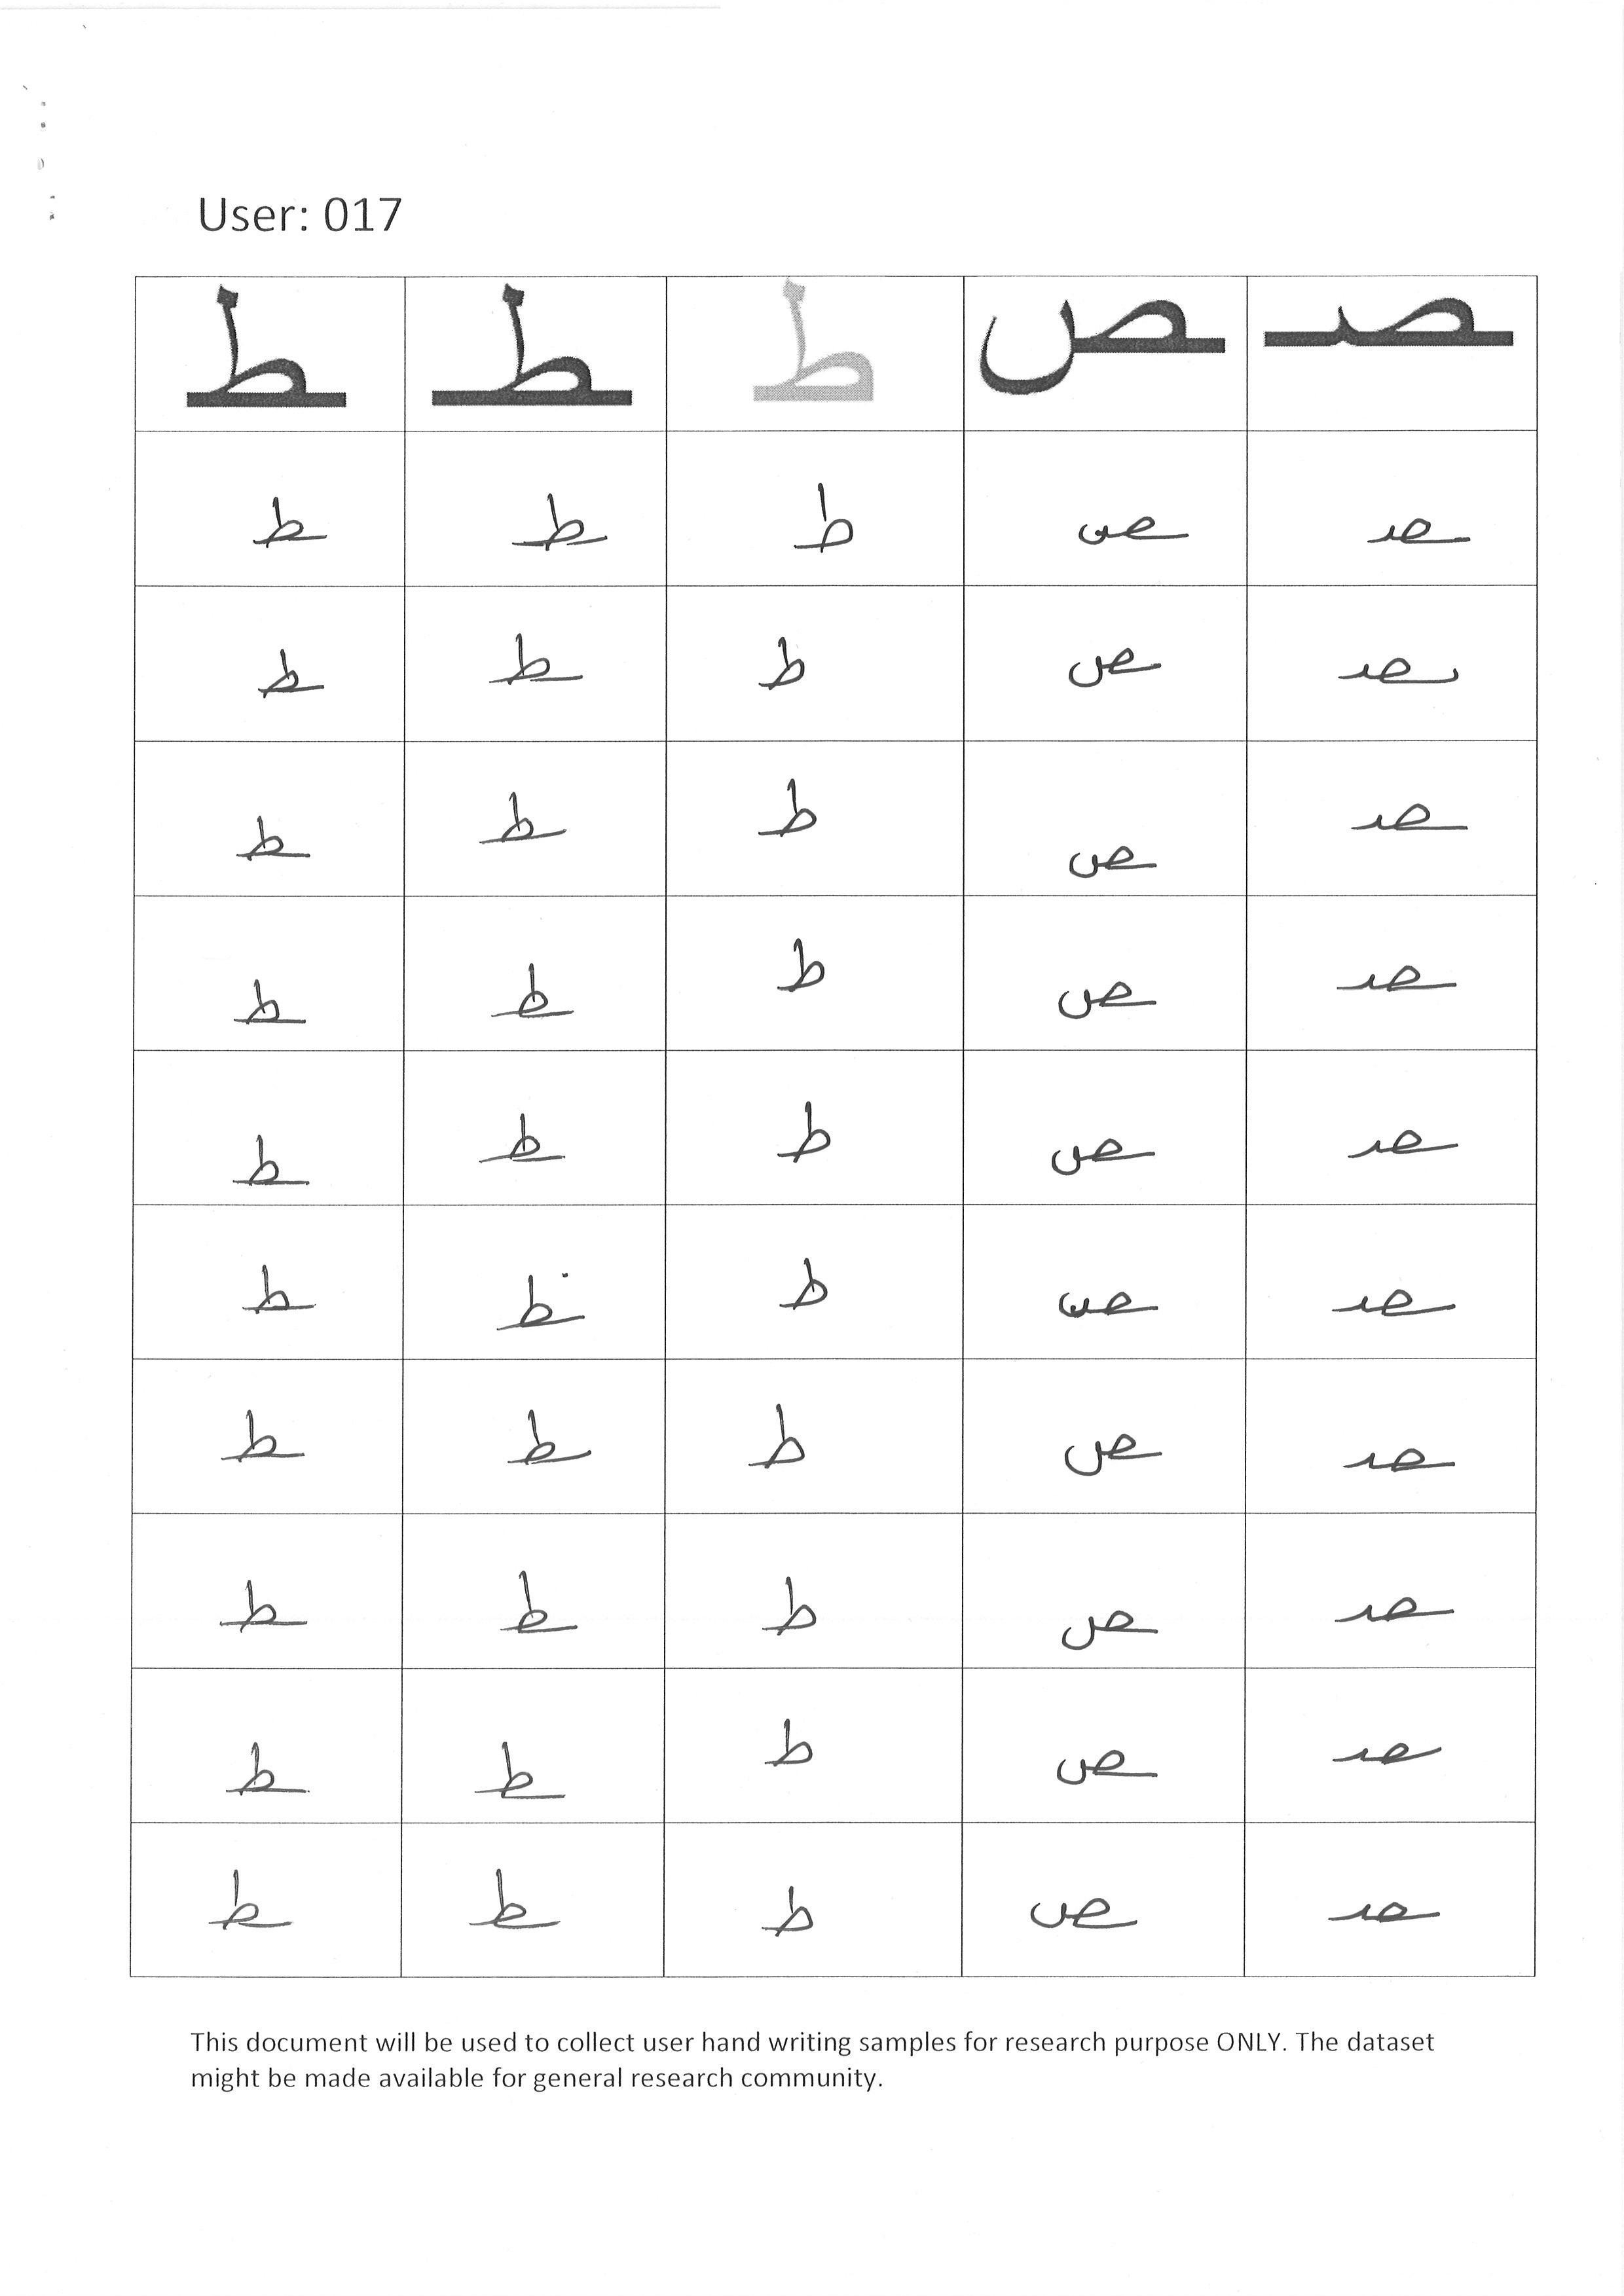 User: 017
ط ط ط ص صـ
ط ط ط ص صـ
ط ط ط ص صـ
ط ط ط ص صـ
ط ط ط ص صـ
ط ط ط ص صـ
ط ط ط ص صـ
ط ط ط ص صـ
ط ط ط ص صـ
ط ط ط ص صـ
ط ط ط ص صـ
This document will be used to collect user hand writing samples for research purpose ONLY. The dataset
might be made available for general research community.